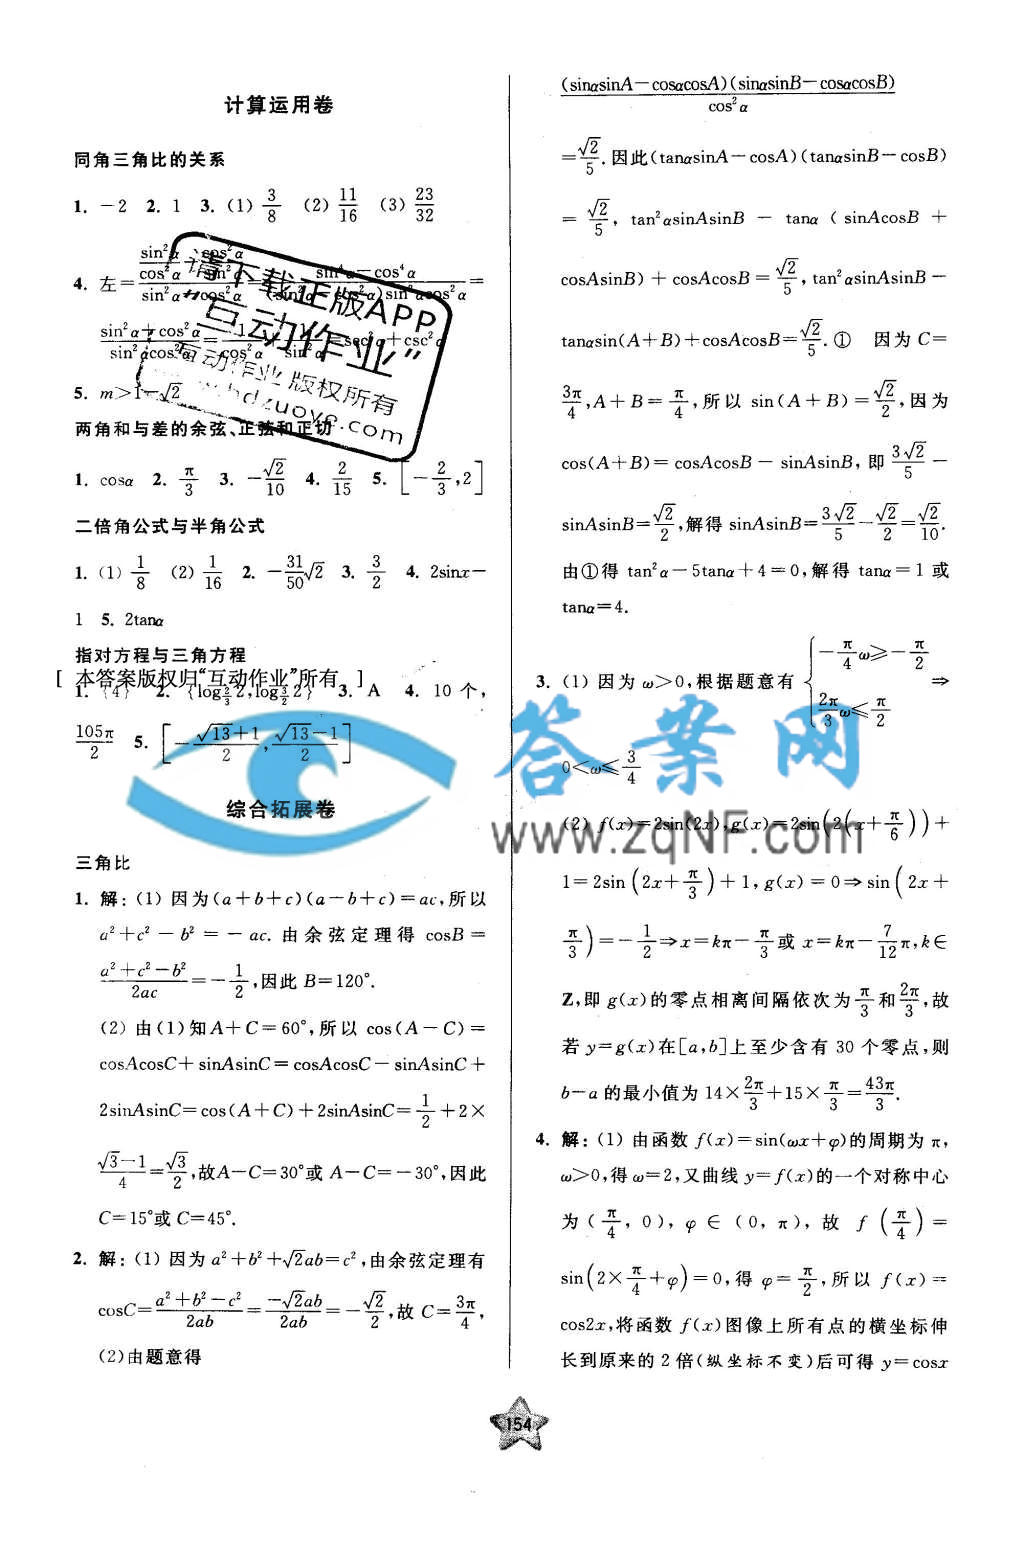 计算运用卷
同角三角比的关系
1. －2 2. 1 3. (1) 3/8 (2) 11/16 (3) 23/32
4. 左＝
5. m＞1－√2
两角和与差的余弦、正弦和正切
1. cosα 2. π/3 3. －√2/10 4. 2/15 5. [－2/3,2]
二倍角公式与半角公式
1. (1) 1/8 (2) 1/16 2. －31/50√2 3. 3/2 4. 2sinx－
1 5. 2tanα
指对方程与三角方程
[ 本答案版权归“互动作业”所有 ]
1. {4} 3. A 4. 10 个,
105π/2 5. [－(√13＋1)/2, (√13－1)/2]
综合拓展卷
三角比
1. 解: (1) 因为(a＋b＋c)(a－b＋c)＝ac,所以
a²＋c²－b²＝－ac. 由余弦定理得 cosB＝
(a²＋c²－b²)/2ac＝－1/2,因此 B＝120°.
(2) 由(1)知A＋C＝60°,所以 cos(A－C)＝
cosAcosC＋sinAsinC＝cosAcosC－sinAsinC＋
2sinAsinC＝cos(A＋C)＋2sinAsinC＝1/2＋2×
(√3－1)/4＝√3/2,故A－C＝30°或 A－C＝－30°,因此
C＝15°或 C＝45°.
2. 解: (1) 因为 a²＋b²＋√2ab＝c²,由余弦定理有
cosC＝(a²＋b²－c²)/2ab＝－√2ab/2ab＝－√2/2,故 C＝3π/4,
(2)由题意得
(sinαsinA－cosαcosA)(sinαsinB－cosαcosB)/cos²α
＝√2/5.因此(tanαsinA－cosA)(tanαsinB－cosB)
＝√2/5, tan²αsinAsinB － tanα(sinAcosB＋
cosAsinB)＋cosAcosB＝√2/5,tan²αsinAsinB－
tanαsin(A＋B)＋cosAcosB＝√2/5.① 因为 C＝
3π/4,A＋B＝π/4,所以 sin(A＋B)＝√2/2,因为
cos(A＋B)＝cosAcosB－sinAsinB,即 3√2/5－
sinAsinB＝√2/2,解得 sinAsinB＝3√2/5－√2/2＝√2/10.
由①得 tan²α－5tanα＋4＝0,解得 tanα＝1 或
tanα＝4.
3. (1) 因为 ω＞0,根据题意有 {－π/4ω≥－π/2 2π/3ω≤π/2 ⇒
0＜ω≤3/4
(2) f(x)＝2sin(2x),g(x)＝2sin(2(x＋π/6))＋
1＝2sin(2x＋π/3)＋1,g(x)＝0⇒sin(2x＋
π/3)＝－1/2⇒x＝kπ－π/3或 x＝kπ－7/12π,k∈
Z,即 g(x)的零点相离间隔依次为π/3和2π/3,故
若 y＝g(x)在[a,b]上至少含有 30 个零点,则
b－a 的最小值为 14×2π/3＋15×π/3＝43π/3.
4. 解: (1) 由函数 f(x)＝sin(ωx＋φ)的周期为 π,
ω＞0,得 ω＝2,又曲线 y＝f(x)的一个对称中心
为(π/4, 0), φ∈(0, π), 故 f(π/4)＝
sin(2×π/4＋φ)＝0,得 φ＝π/2,所以 f(x)＝
cos2x,将函数 f(x)图像上所有点的横坐标伸
长到原来的 2 倍(纵坐标不变)后可得 y＝cosx
154
请下载正版APP
“互动作业”
互动作业版权所有
答案网
www.zqNF.com